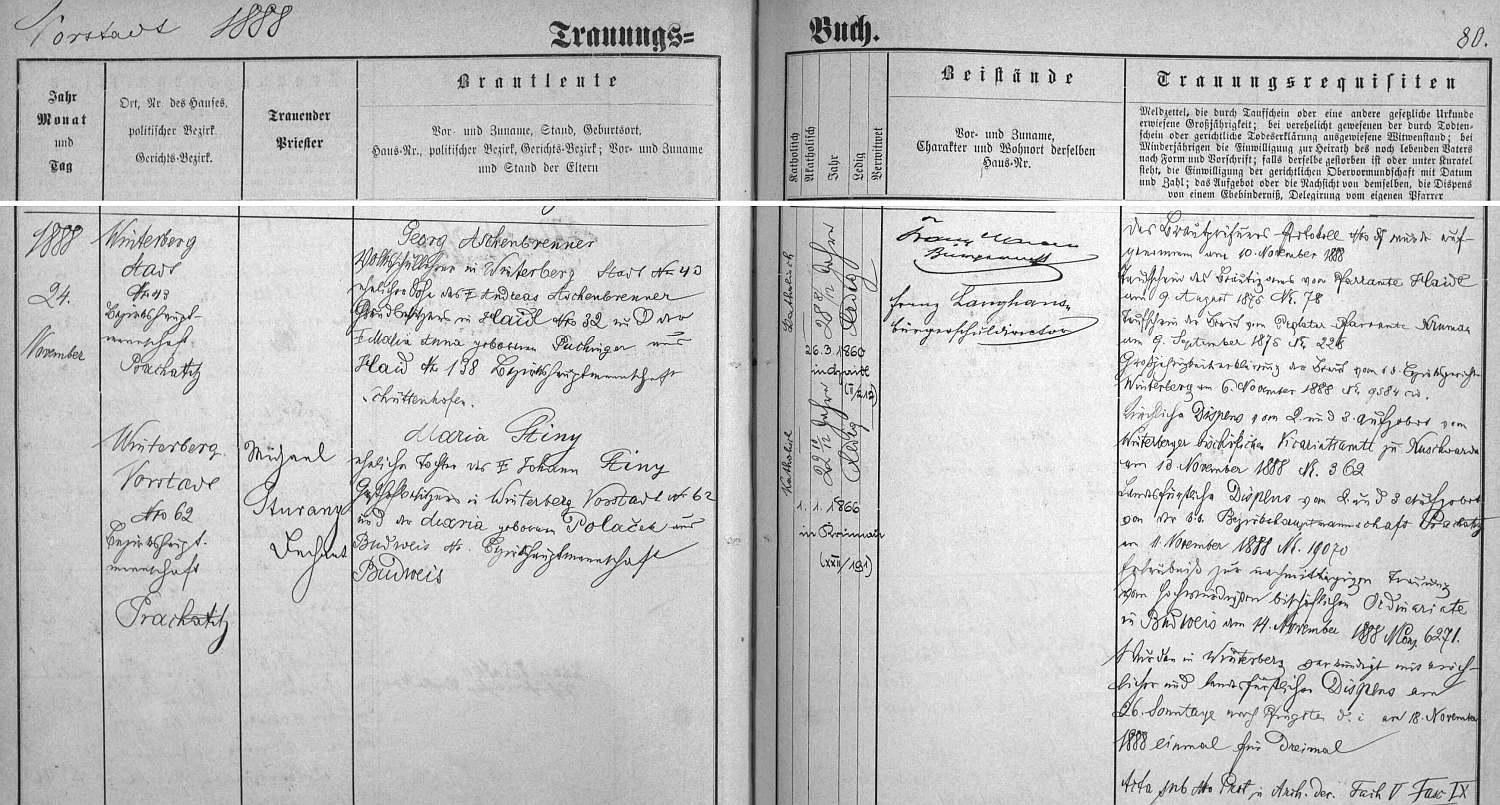 Vorstadt 1888
Trauungs=
Buch.
80.
Jahr
Monat
und
Tag
Ort, Nr. des Hauses,
politischer Bezirk.
Gerichts-Bezirk.
Trauender
Priester
Brautleute
Vor- und Zuname, Stand, Geburtsort,
Haus-Nr., politischer Bezirk, Gerichts-Bezirk; Vor- und Zuname
und Stand der Eltern
Katholisch
Akatholisch
Jahr
Ledig
Verwitwet
Beistände
Vor- und Zuname,
Charakter und Wohnort derselben
Haus-Nr.
Trauungsrequisiten
Meldzettel, die durch Taufschein oder eine andere gesetzliche Urkunde
erwiesene Großjährigkeit; bei verehelicht gewesenen der durch Todten-
schein oder gerichtliche Todeserklärung ausgewiesene Witwenstand; bei
Minderjährigen die Einwilligung zur Heirath des noch lebenden Vaters
nach Form und Vorschrift; falls derselbe gestorben ist oder unter Kuratel
steht, die Einwilligung der gerichtlichen Obervormundschaft mit Datum
und Zahl; das Aufgebot oder die Nachsicht von demselben, die Dispens
von einem Ehehinderniß, Delegirung vom eigenen Pfarrer
1888
24.
November
Winterberg
Stadt
No 43
Bezirkshaupt-
mannschaft
Prachatitz
Georg Aschenbrenner
Volksschullehrer in Winterberg Stadt No 43
ehelicher Sohn des † Andreas Aschenbrenner
Grundbesitzers in Haid No 32 und der
† Maria Anna geborenen Puchinger aus
Haid No 138 Bezirkshauptmannschaft
Schüttenhofen.
Winterberg
Vorstadt
No 62
Bezirkshaupt-
mannschaft
Prachatitz
Michael
Sturany
Dechant
Maria Stiny
eheliche Tochter des † Johann Stiny
in Winterberg Vorstadt No 62
und der Maria geborenen Polaček aus
Budweis No. Bezirkshauptmannschaft
Budweis
Katholisch
28 8/12 Jahre
Ledig
26.3.1860
(II/212)
Katholisch
22 Jahre
Ledig
1.1.1866
in Krumau
(XXII/191)
Franz
Franz Langhans
Bürgerschuldirector
Des Bräutigams Protokoll No wurde auf-
genommen am 10. November 1888
Taufschein des Bräutigams vom Pfarramte Haidl
am 9 August 1876 No. 78
Taufschein der Braut vom Prälatur Pfarramte Krumau
am 9. September 1876 No. 228
Großjährigkeitserklärung der Braut vom k.k. Bezirksgerichte
Winterberg am 6. November 1888 No. 9584 civ.
Kirchliche Dispens vom 2. und 3. Aufgebot vom
Winterberger bischöflichen Vicariatsamte zu Kuschwarda
am 13 November 1888 No. 362
Landesfürstliche Dispens vom 2. und 3 Aufgebot
von der k.k. Bezirkshauptmannschaft Prachatitz
am 11. November 1888 No. 19070
Erlaubniß zur nachmittägigen Trauung
vom hochwürdigsten bischöflichen Ordinariate
in Budweis am 14. November 1888 No 6271.
Wurden in Winterberg verkündigt mit kirch-
licher und landesfürstlicher Dispens am
26. Sonntage nach Pfingsten d. i. am 18. November
1888 einmal für dreimal
Acta sub No Prot. in Arch. dec. Fach V Fasc IX